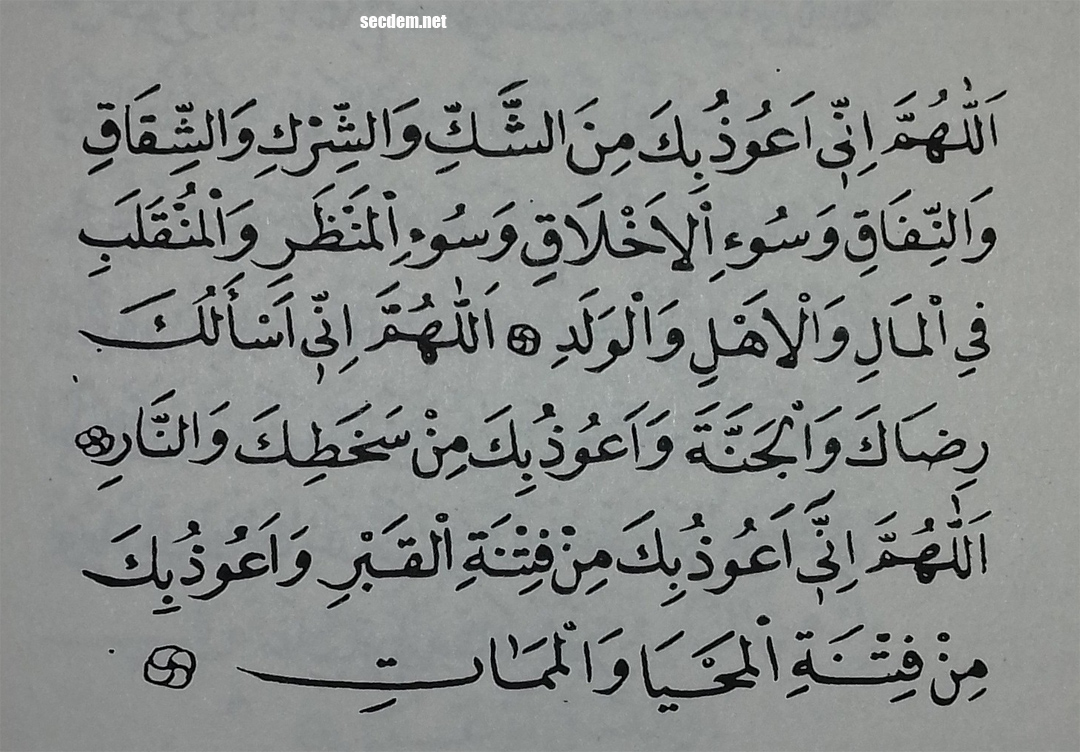 secdem.net
اَللّٰهُمَّ اِنّٖى اَعُوذُ بِكَ مِنَ الشَّكِّ وَالشِّرْكِ وَالشِّقَاقِ
وَالنِّفَاقِ وَسُوءِ اْلاَخْلَاقِ وَسُوءِ اْلمَنْظَرِ وَاْلمُنْقَلَبِ
فِي اْلمَالِ وَاْلاَهْلِ وَاْلوَلَدِ ۞ اَللّٰهُمَّ اِنّٖى اَسْأَلُكَ
رِضَاكَ وَاْلجَنَّةَ وَاَعُوذُ بِكَ مِنْ سَخَطِكَ وَالنَّارِ ۞
اَللّٰهُمَّ اِنّٖٓى اَعُوذُ بِكَ مِنْ فِتْنَةِ اْلقَبْرِ وَاَعُوذُ بِكَ
مِنْ فِتْنَةِ اْلمَحْيَا وَاْلمَمَاتِ ۞